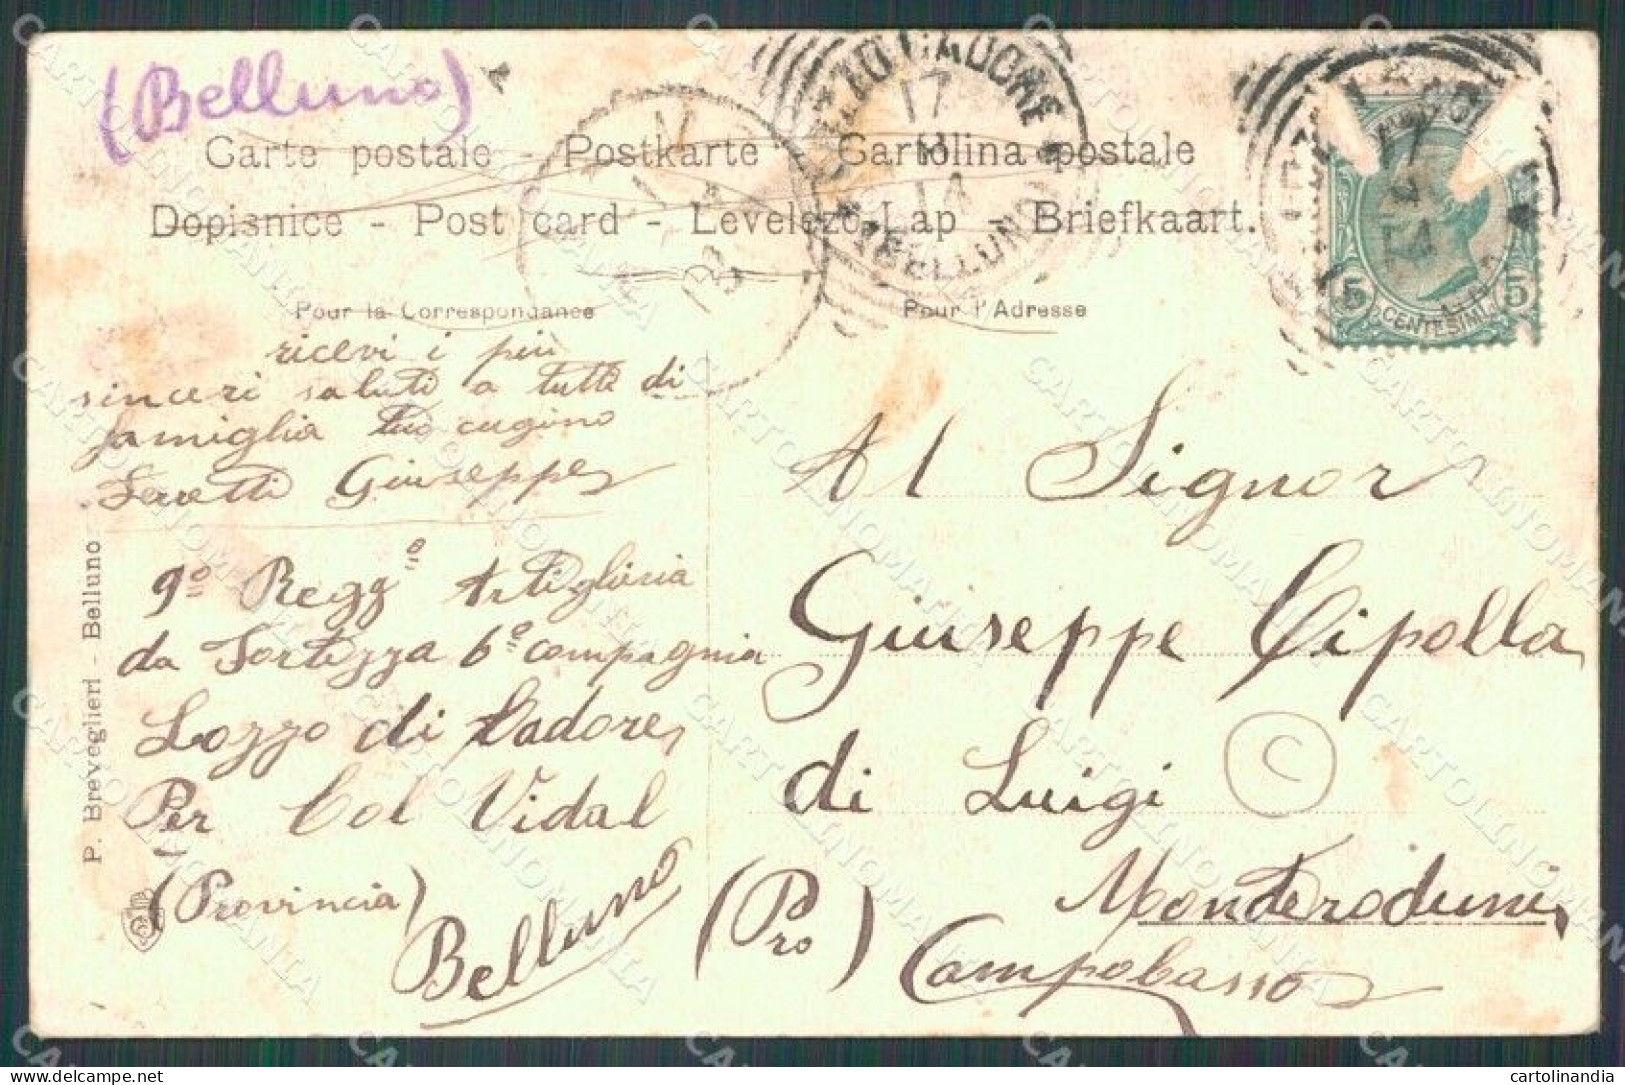 (Belluno)
Carte postale - Postkarte - Cartolina postale
Dopisnice - Post card - Levelező-Lap - Briefkaart.
Pour la Correspondance
Pour l'Adresse
LOZZO CADORE
17
14
BELLUNO
5 CENTESIMI 5
ricevi i più
sinceri saluti a tutti di
famiglia tuo cugino
Ferretti Giuseppe
9º Reggº Artiglieria
da Fortezza 6º compagnia
Lozzo di Cadore
Per Col Vidal
(Provincia)
Belluno
Al Signor
Giuseppe Cipolla
di Luigi
C
Monteroduni
(Pro) Campobasso
P. Breveglieri - Belluno
CARTOLINOMANIA
cartolinandia